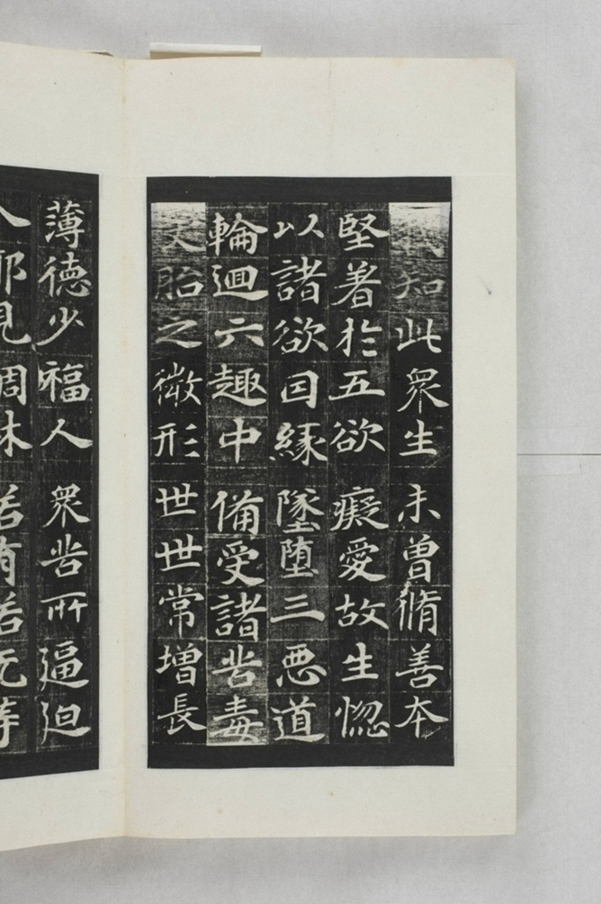 我知此衆生未曾脩善本
堅著於五欲癡愛故生惱
以諸欲因緣墜墮三惡道
輪迴六趣中備受諸苦毒
受胎之微形世世常增長
薄德少福人衆苦所逼迫
入邪見稠林若有若无等